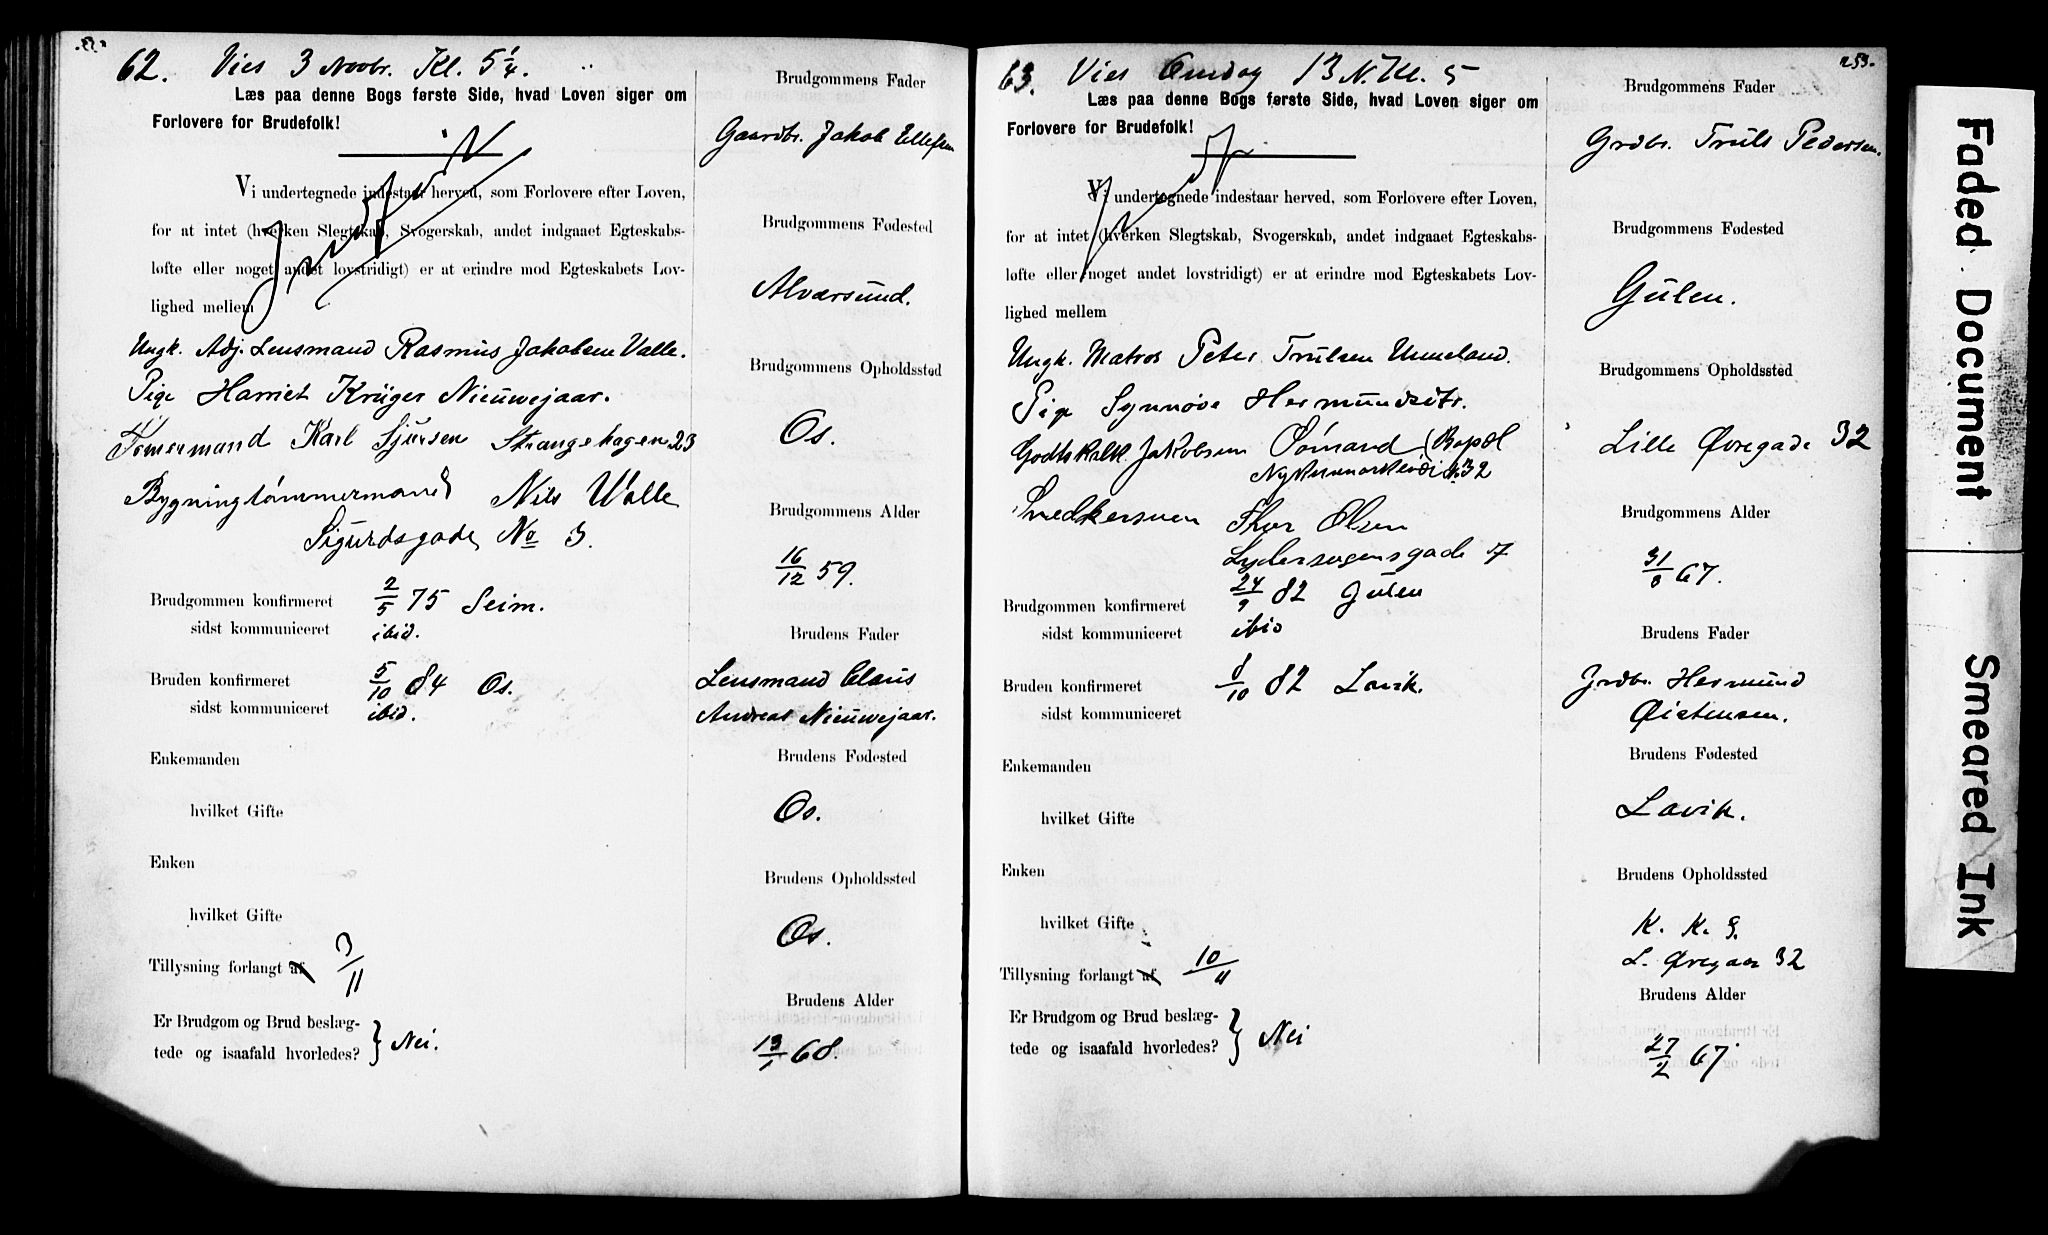 62. Vies 3 Novbr. Kl. 5 1/4.
Læs paa denne Bogs første Side, hvad Loven siger om
Forlovere for Brudefolk!
Vi undertegnede indestaar herved, som Forlovere efter Loven,
for at intet (hverken Slegtskab, Svogerskab, andet indgaaet Egteskabs-
løfte eller noget andet lovstridigt) er at erindre mod Egteskabets Lov-
lighed mellem
Ungk. Adj. Lensmand Rasmus Jakobsen Valle.
Pige Harriet Krüger Nieuwejaar.
Tømermand Karl Sjursen Strangehagen 23
Bygningtømmermand Nils Walle
Sigurdsgade No 3.
Brudgommen konfirmeret 2/5 75 Seim.
sidst kommuniceret ibid.
Bruden konfirmeret 5/10 84 Os.
sidst kommuniceret ibid.
Enkemanden
hvilket Gifte
Enken
hvilket Gifte
Tillysning forlangt af 3/11
Er Brudgom og Brud beslæg-
tede og isaafald hvorledes? } Nei.
Brudgommens Fader
Gaardbr. Jakob Ellefsen
Brudgommens Fødested
Alversund.
Brudgommens Opholdssted
Os.
Brudgommens Alder
16/12 59.
Brudens Fader
Lensmand Claus
Andreas Nieuwejaar.
Brudens Fødested
Os.
Brudens Opholdssted
Os.
Brudens Alder
13/1 68.
253.
63. Vies Onsdag 13 N. Kl. 5
Læs paa denne Bogs første Side, hvad Loven siger om
Forlovere for Brudefolk!
Vi undertegnede indestaar herved, som Forlovere efter Loven,
for at intet (hverken Slegtskab, Svogerskab, andet indgaaet Egteskabs-
løfte eller noget andet lovstridigt) er at erindre mod Egteskabets Lov-
lighed mellem
Ungk. Matros Peter Trulsen Unneland.
Pige Synnøve Hermundsdtr.
Godtskalk Jakobsen Sømand
32
Snedkersven Thor Olsen
Lydersagensgade 7
Brudgommen konfirmeret 24/9 82 Gulen
sidst kommuniceret ibid
Bruden konfirmeret 8/10 82 Lavik.
sidst kommuniceret
Enkemanden
hvilket Gifte
Enken
hvilket Gifte
Tillysning forlangt af 10/11
Er Brudgom og Brud beslæg-
tede og isaafald hvorledes? } Nei
Brudgommens Fader
Grdbr. Truls Pedersen.
Brudgommens Fødested
Gulen.
Brudgommens Opholdssted
Lille Øvregade 32
Brudgommens Alder
31/8 67.
Brudens Fader
Grdbr. Hermund
Øistensen.
Brudens Fødested
Lavik.
Brudens Opholdssted
K. K. S.
L. Øvregade 32
Brudens Alder
27/2 67
Faded Document
Smeared Ink